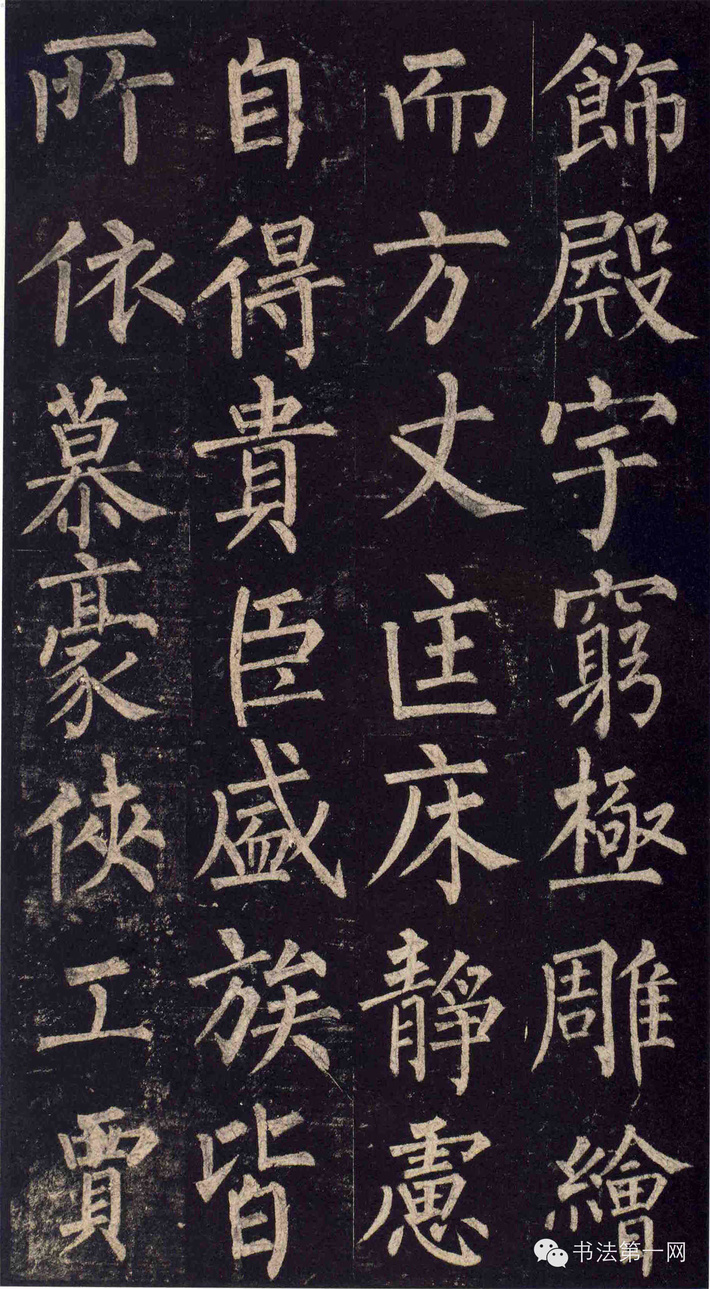 飾殿宇窮極雕繪
而方丈匡床靜慮
自得貴臣盛族皆
所依慕豪俠工賈
书法第一网